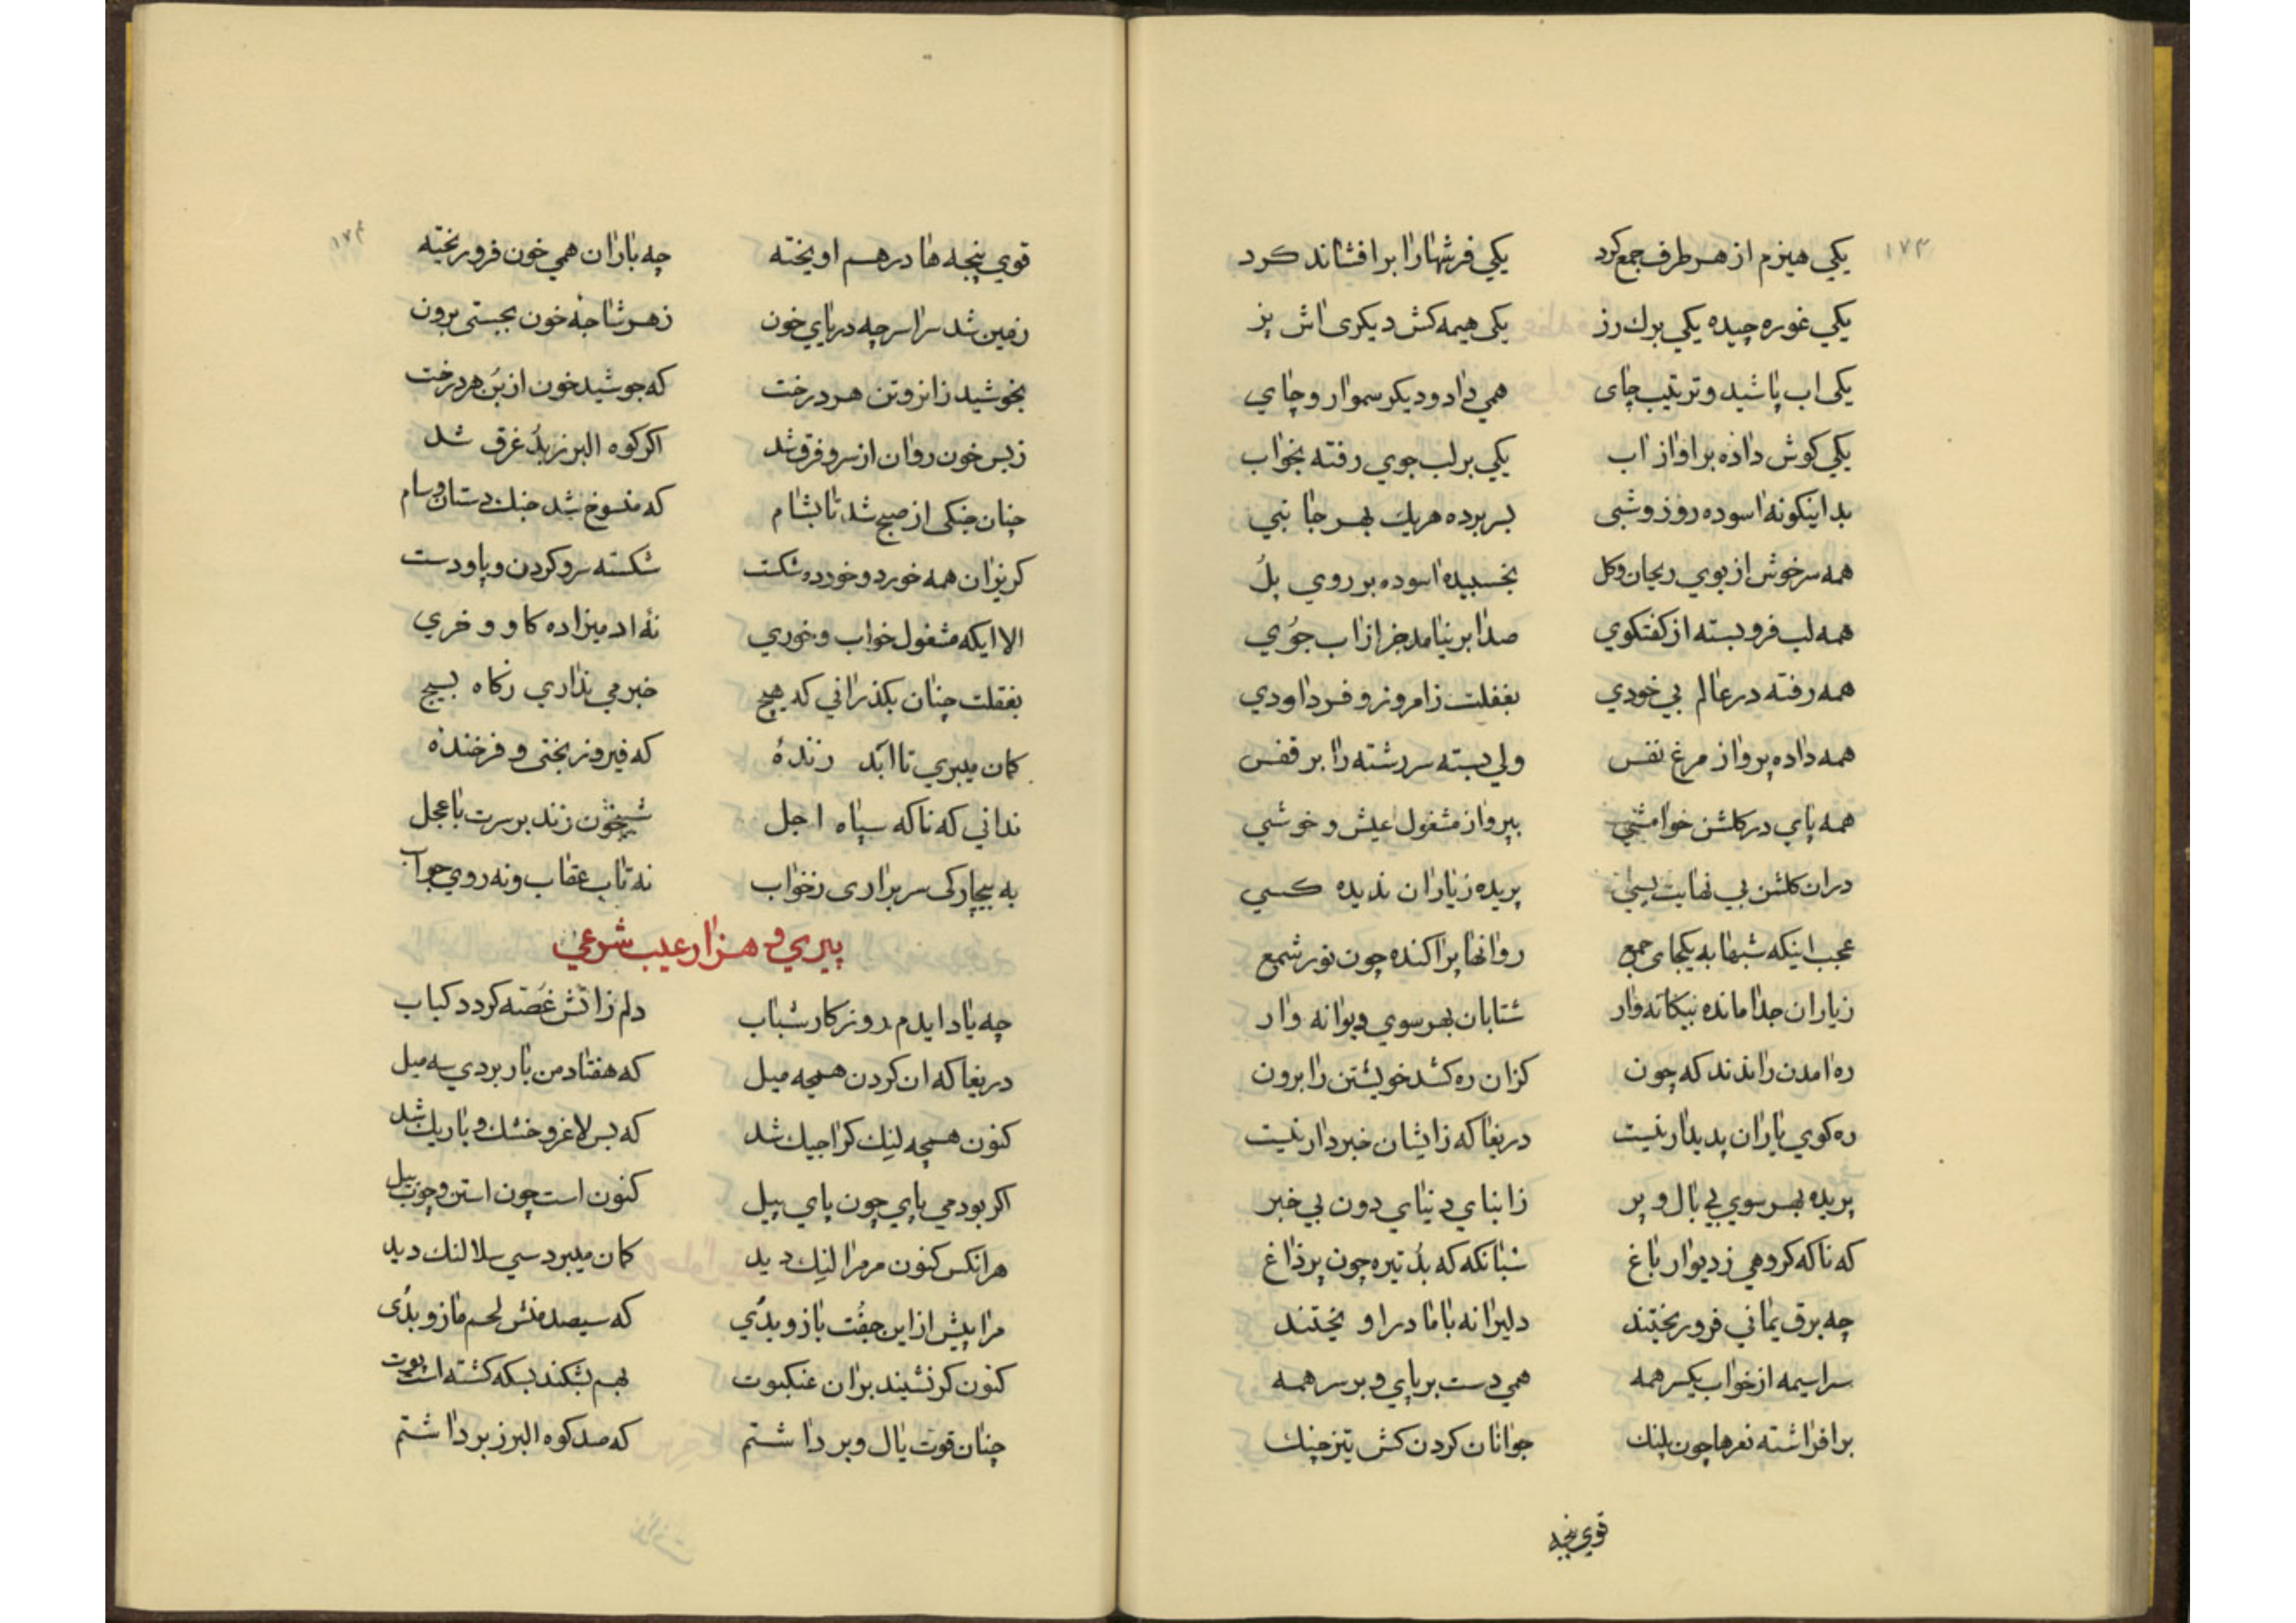 ۱۷۳
یکي هیزم از هر طرف جمع کرد یکي فرشها را برافشاند کرد
یکي غوره چیده یکي برك رز یکی هیمه کش دیکری اش پز
یکی اب پاشید و ترتیب چای همي داد و دیکر سموار و چاي
یکي کوش داده بر اواز اب یکي بر لب جوي رفته بخواب
بداینکونه اسوده روز و شبی بسر برده هریك بهر جانبي
همه سرخوش از بوي ریحان و کل بخسبیده اسوده بر روي پلُ
همه لب فرو بسته از کفتکوي صدا بر نیامد جز از اب جوُي
همه رفته در عالم بي خودي بغفلت ز امروز و فردا ودي
همه داده پرواز مرغ نفس ولي بسته سر رشته را بر قفس
همه پاي در کلشن خوامشي بپرواز مشغول عیش و خوشي
دران کلشن بي نهایت بسي پریده ز یاران ندیده کسي
عجب اینکه شبها به یکجای جمع روانها پراکنده چون نور شمع
ز یاران جدا مانده بیکانه وار شتابان بهر سوي دیوانه وار
ره امدن را ندند که چون کزان ره کشد خویشتن را برون
ره کوي یاران پدیدار نیست دریغا که زایشان خبردار نیست
پریده بهر سوي بي بال و پر ز ابناي دنیاي دون بي خبر
که ناکه کروهي ز دیوار باغ شبانکه که بدُ تیره چون پر ذاغ
چه برق یماني فرو ریختند دلیرانه با ما در اویختند
سراسیمه از خواب یکسر همه همي دست بر پاي و بر سر همه
بر افراشته نعرها چون پلنك جوانان کردن کش تیز چنك
قوي پنجه
۱۷۴
قوي پنجه ها در هم اویخته چه باران همي خون فرو ریخته
زمین شد سراسر چه دریاي خون ز هر شاخهٔ خون بجستی برون
بخوشید زانرو تن هر درخت که جوشید خون از بُن هر درخت
ز بس خون روان از سر و فرق شد اکر کوه البرز بدُ غرق شد
چنان جنکی از صبح شد تا بشام که منسوخ شد جنك دستان و سام
کریزان همه خورد و خورده شکت شکسته سر و کردن و پا و دست
الا ایکه مشغول خواب و خوري نهٔ ادمیزاده کاو و خري
بغفلت چنان بکذراني که هیچ خبر مي نداري ز کاه بسیج
کمان میبري تا ابد زندهٔ که فیروز بختی و فرخندهٔ
نداني که ناکه سپاه اجل شبیخون زند بر سرت با عجل
به بیچارکی سر براری ز خواب نه تاب عقاب و نه روي جواب
پیري و هزار عیب شرعي
چه یاد ایدم روزکار شباب دلم ز اتش غصّه کردد کباب
دریغا که ان کردن همچه میل که هفتاد من بار بردي سه میل
کنون همچه لنك کراجیك شد که بس لاغر و خشك و باریك شد
اکر بودمي پاي چون پاي پیل کنون است چون استن و چوب بیل
هر انکس کنون مر مرا لنك دید کمان میبرد سي سلا لنك دید
مرا پیش از این جفُت بازو بدُي که سیصد منش لحم مازو بدُی
کنون کر نشیند بر ان عنکبوت بهم بشکند بسکه کشته است پوت
چنان قوت یال و بر داشتم که صد کوه البرز برداشتم